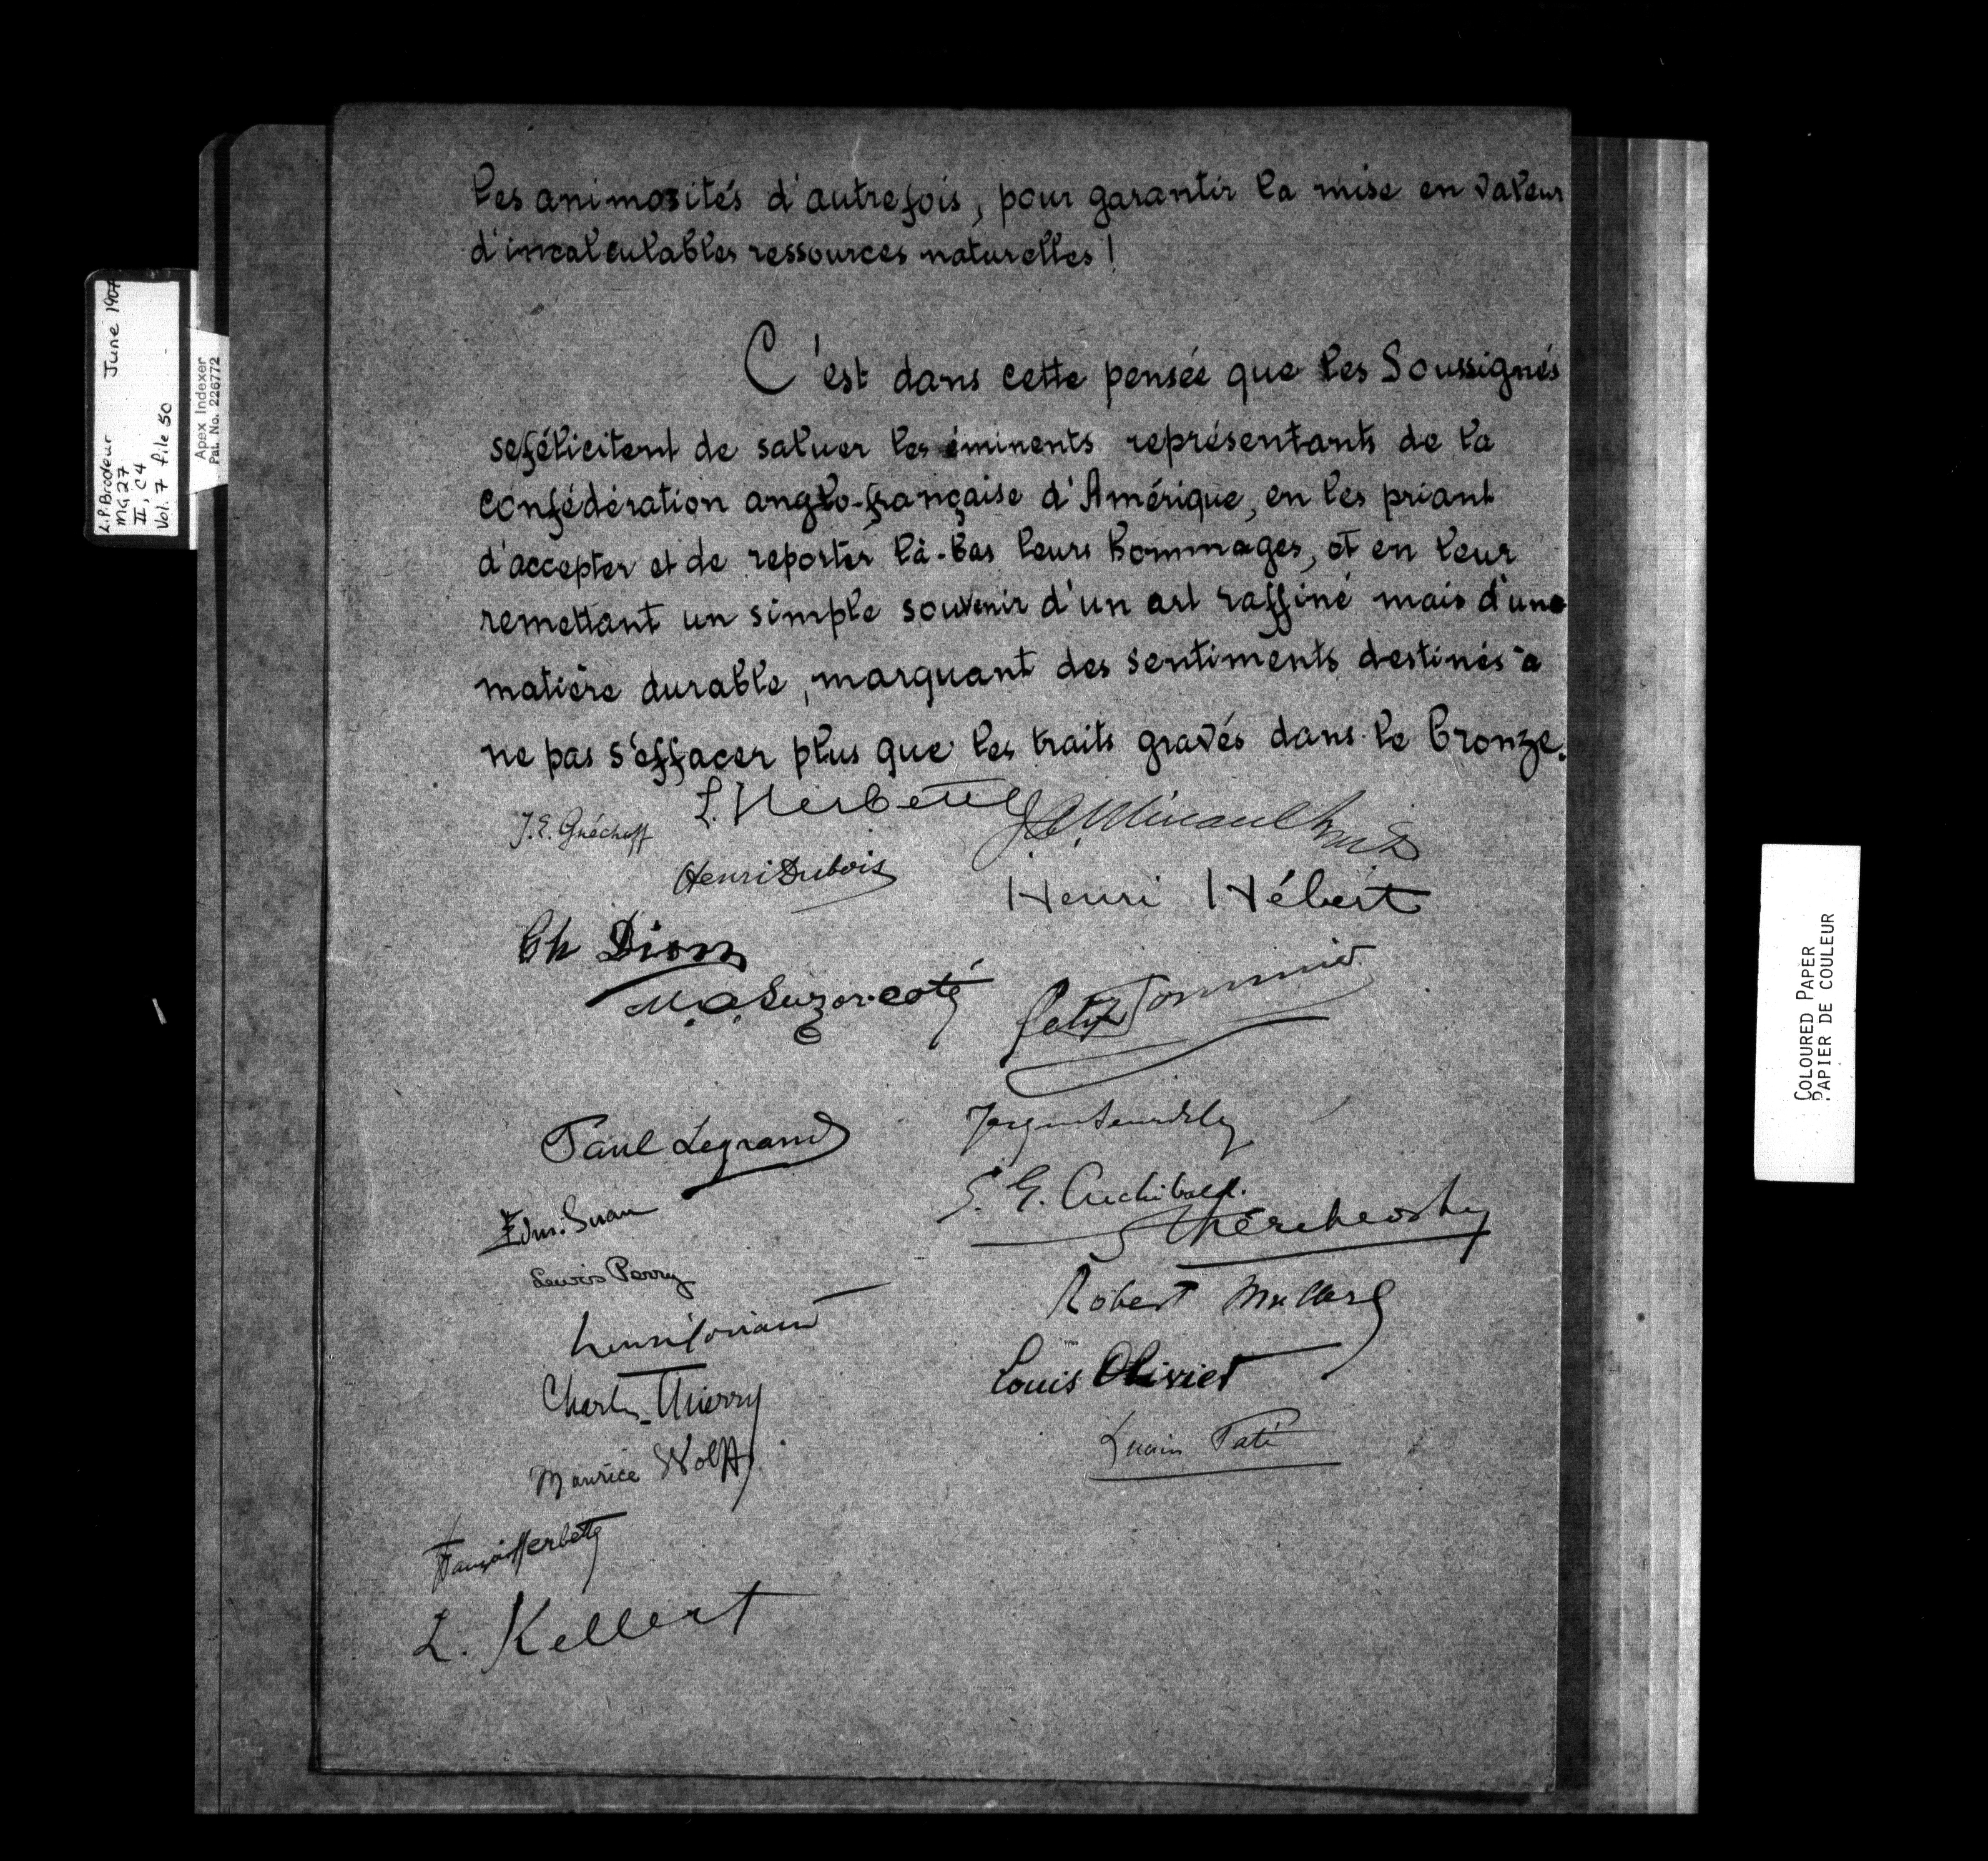 les animosités d'autrefois, pour garantir la mise en valeur
d'incalculables ressources naturelles!
C'est dans cette pensée que les Soussignés
se félicitent de saluer les éminents représentants de la
confédération anglo-française d'Amérique, en les priant
d'accepter et de reporter là-bas leurs hommages, et en leur
remettant un simple souvenir d'un art raffiné mais d'une
matière durable, marquant des sentiments destinés à
ne pas s'effacer plus que les traits gravés dans le bronze.
L. Herbette
J.E.
Henri Dubois
Henri Hébert
Ch Dion
M.A. Suzor-Coté
Paul Legrand
S. E. Archibald.
Lewis Perry
Robert
Louis Olivier
Charles Thierry
Maurice Wolff
François Herbette
L. Kellert
L.P. Brodeur June 1907
MG 27
II, C4
Vol. 7 file 50
Apex Indexer
Pat. No. 226772
COLOURED PAPER
PAPIER DE COULEUR